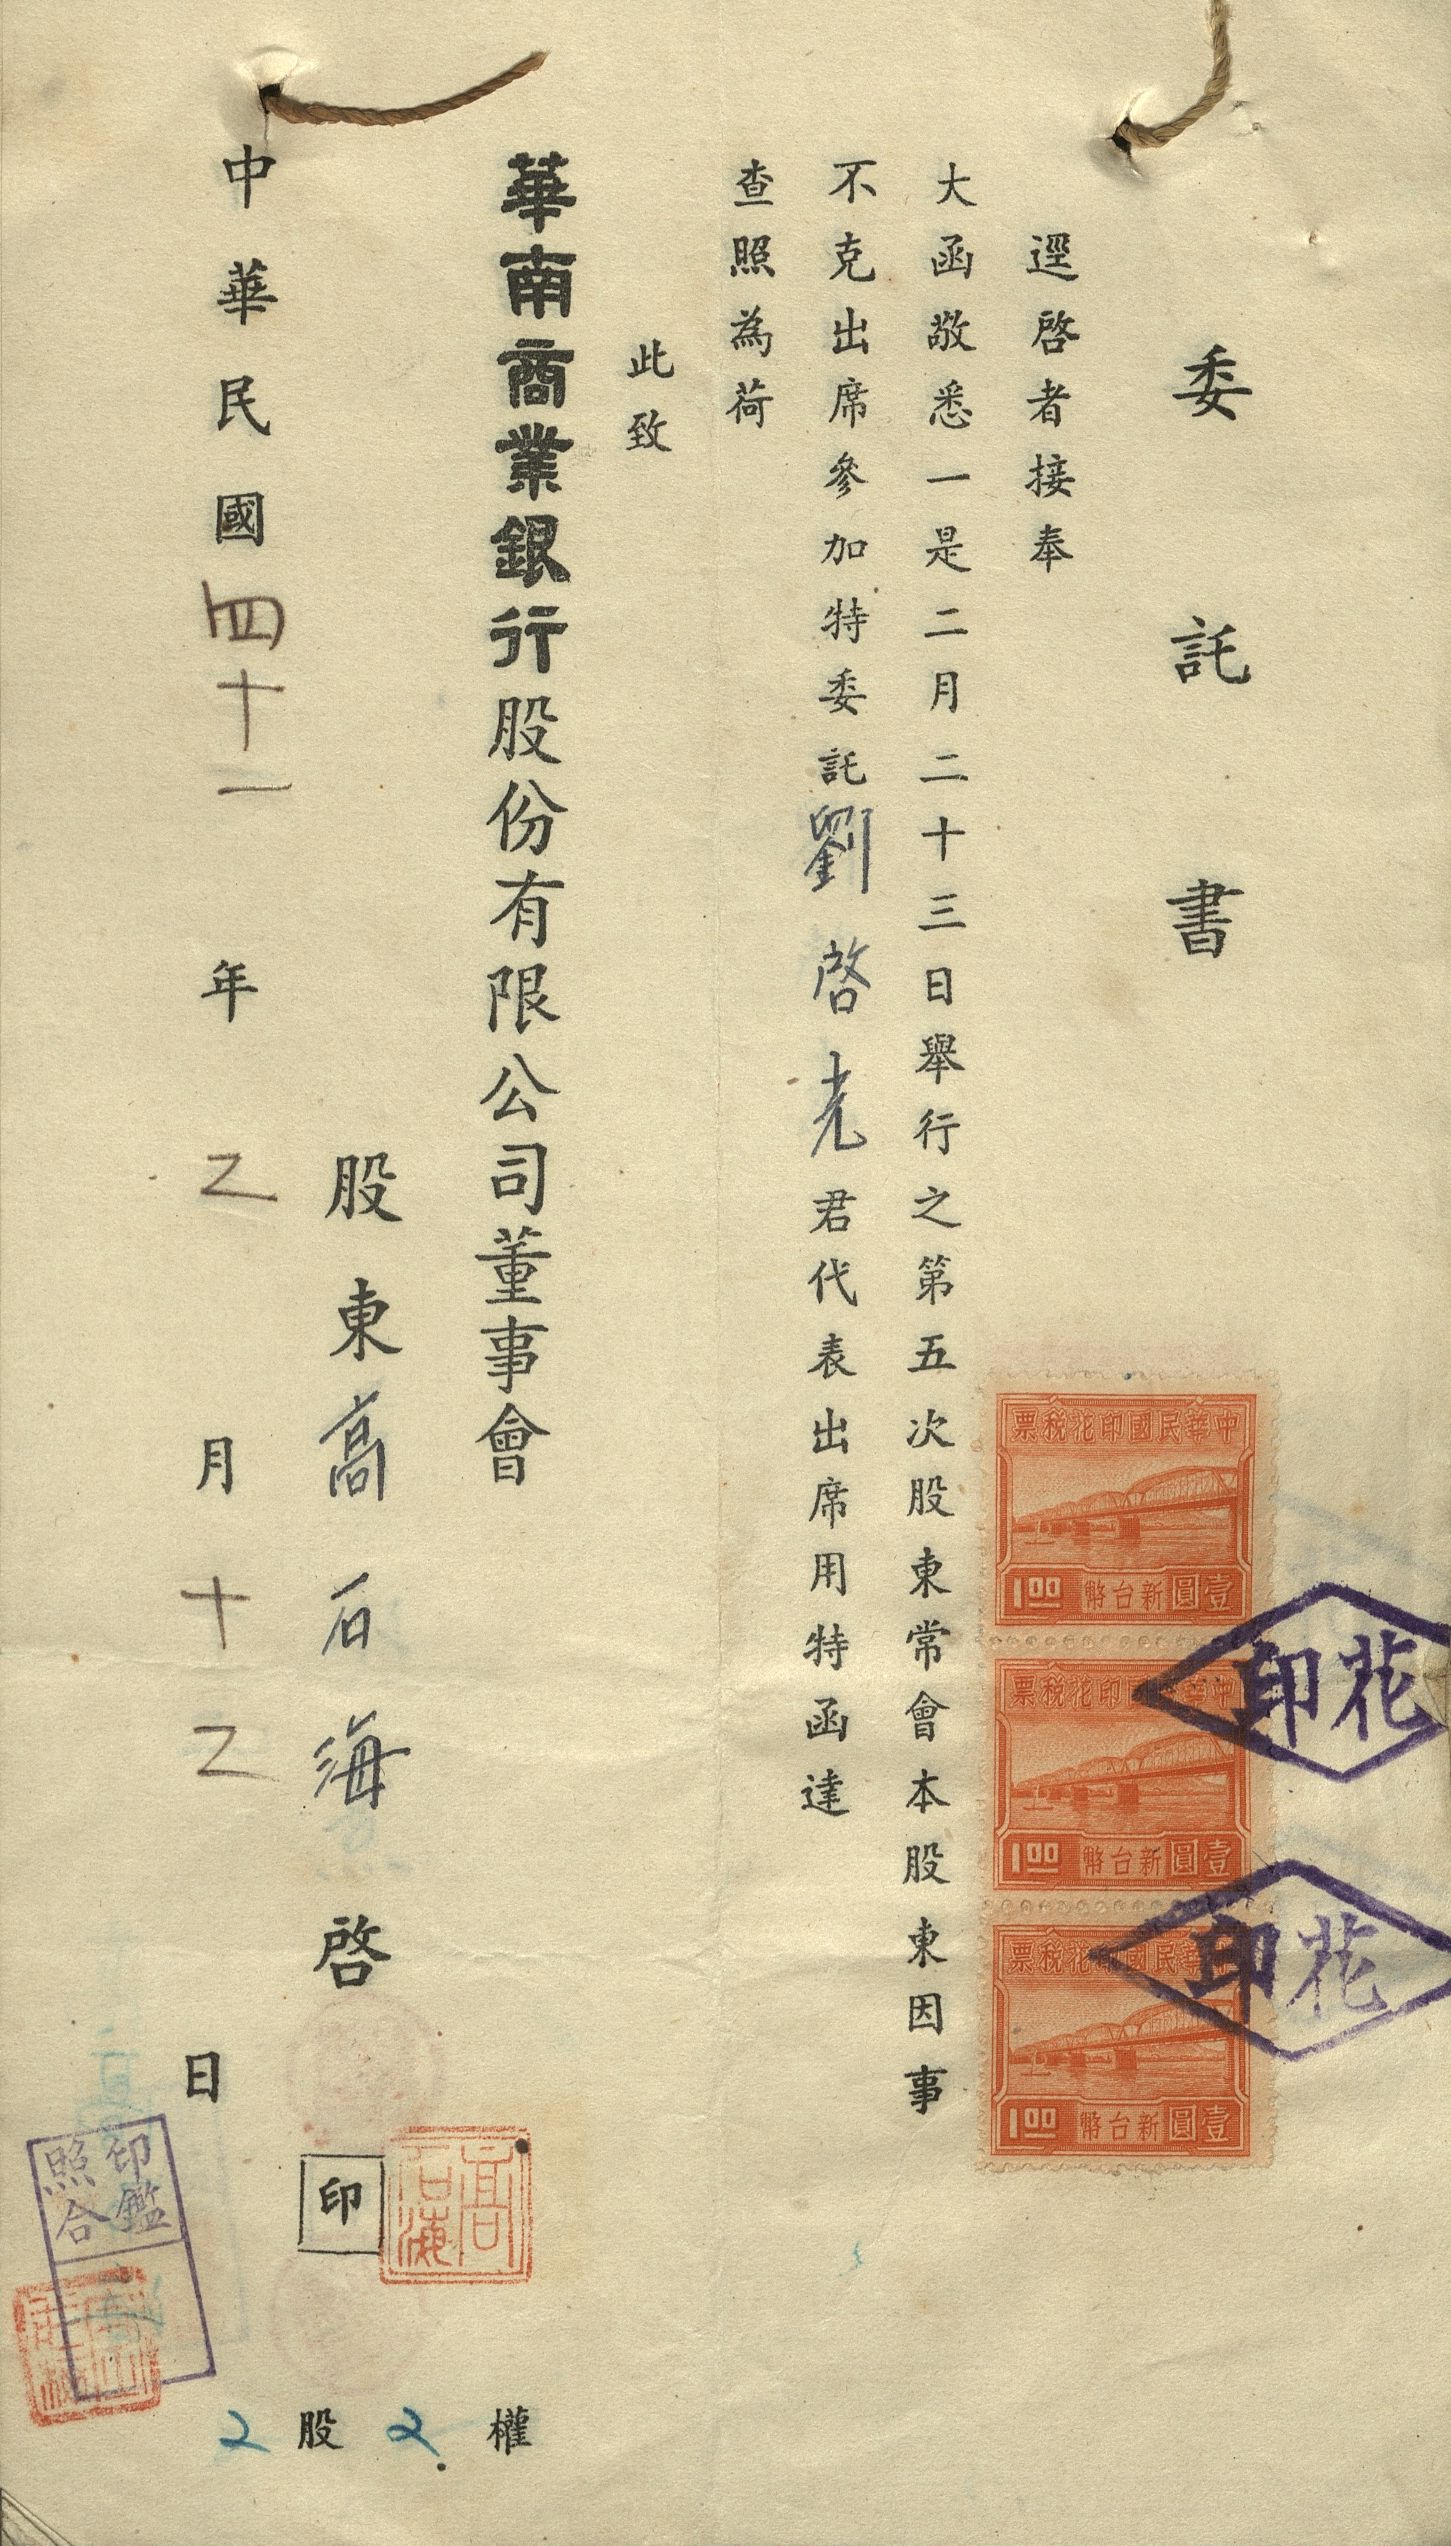 委託書
逕啓者接奉
大函敬悉一是二月二十三日舉行之第五次股東常會本股東因事
不克出席參加特委託劉啓光君代表出席用特函達
查照為荷
此致
華南商業銀行股份有限公司董事會
股東高石海啓 印
中華民國四十二年乙月十乙日
2股2權
票稅花印國民華中
1.00 幣台新圓壹
票稅花印國民華中
1.00 幣台新圓壹
票稅花印國民華中
1.00 幣台新圓壹
印花
印花
高石海
印鑑
照合